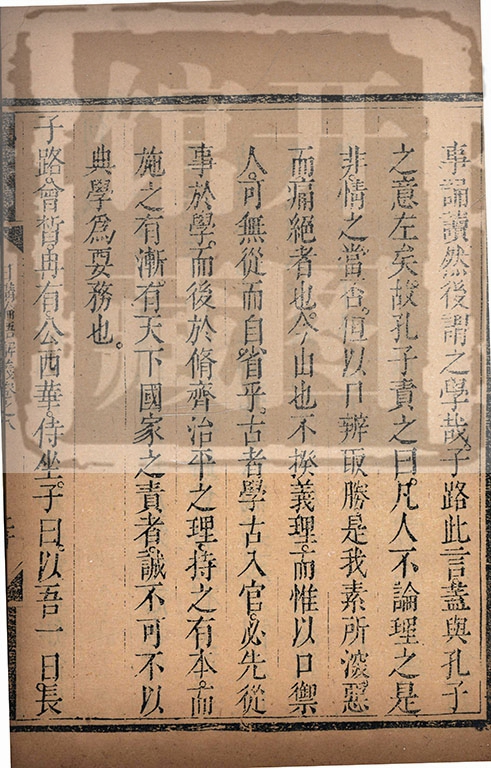 事誦讀然後謂之學哉子路此言蓋與孔子
之意左矣故孔子責之曰凡人不論理之是
非情之當否但以口辨取勝是我素所深惡
而痛絕者也今由也不揆義理而惟以口禦
人可無從而自省乎古者學古入官必先從
事於學而後於脩齊治平之理持之有本而
施之有漸有天下國家之責者誠不可不以
典學為要務也
子路曾皙冉有公西華侍坐子曰以吾一日長